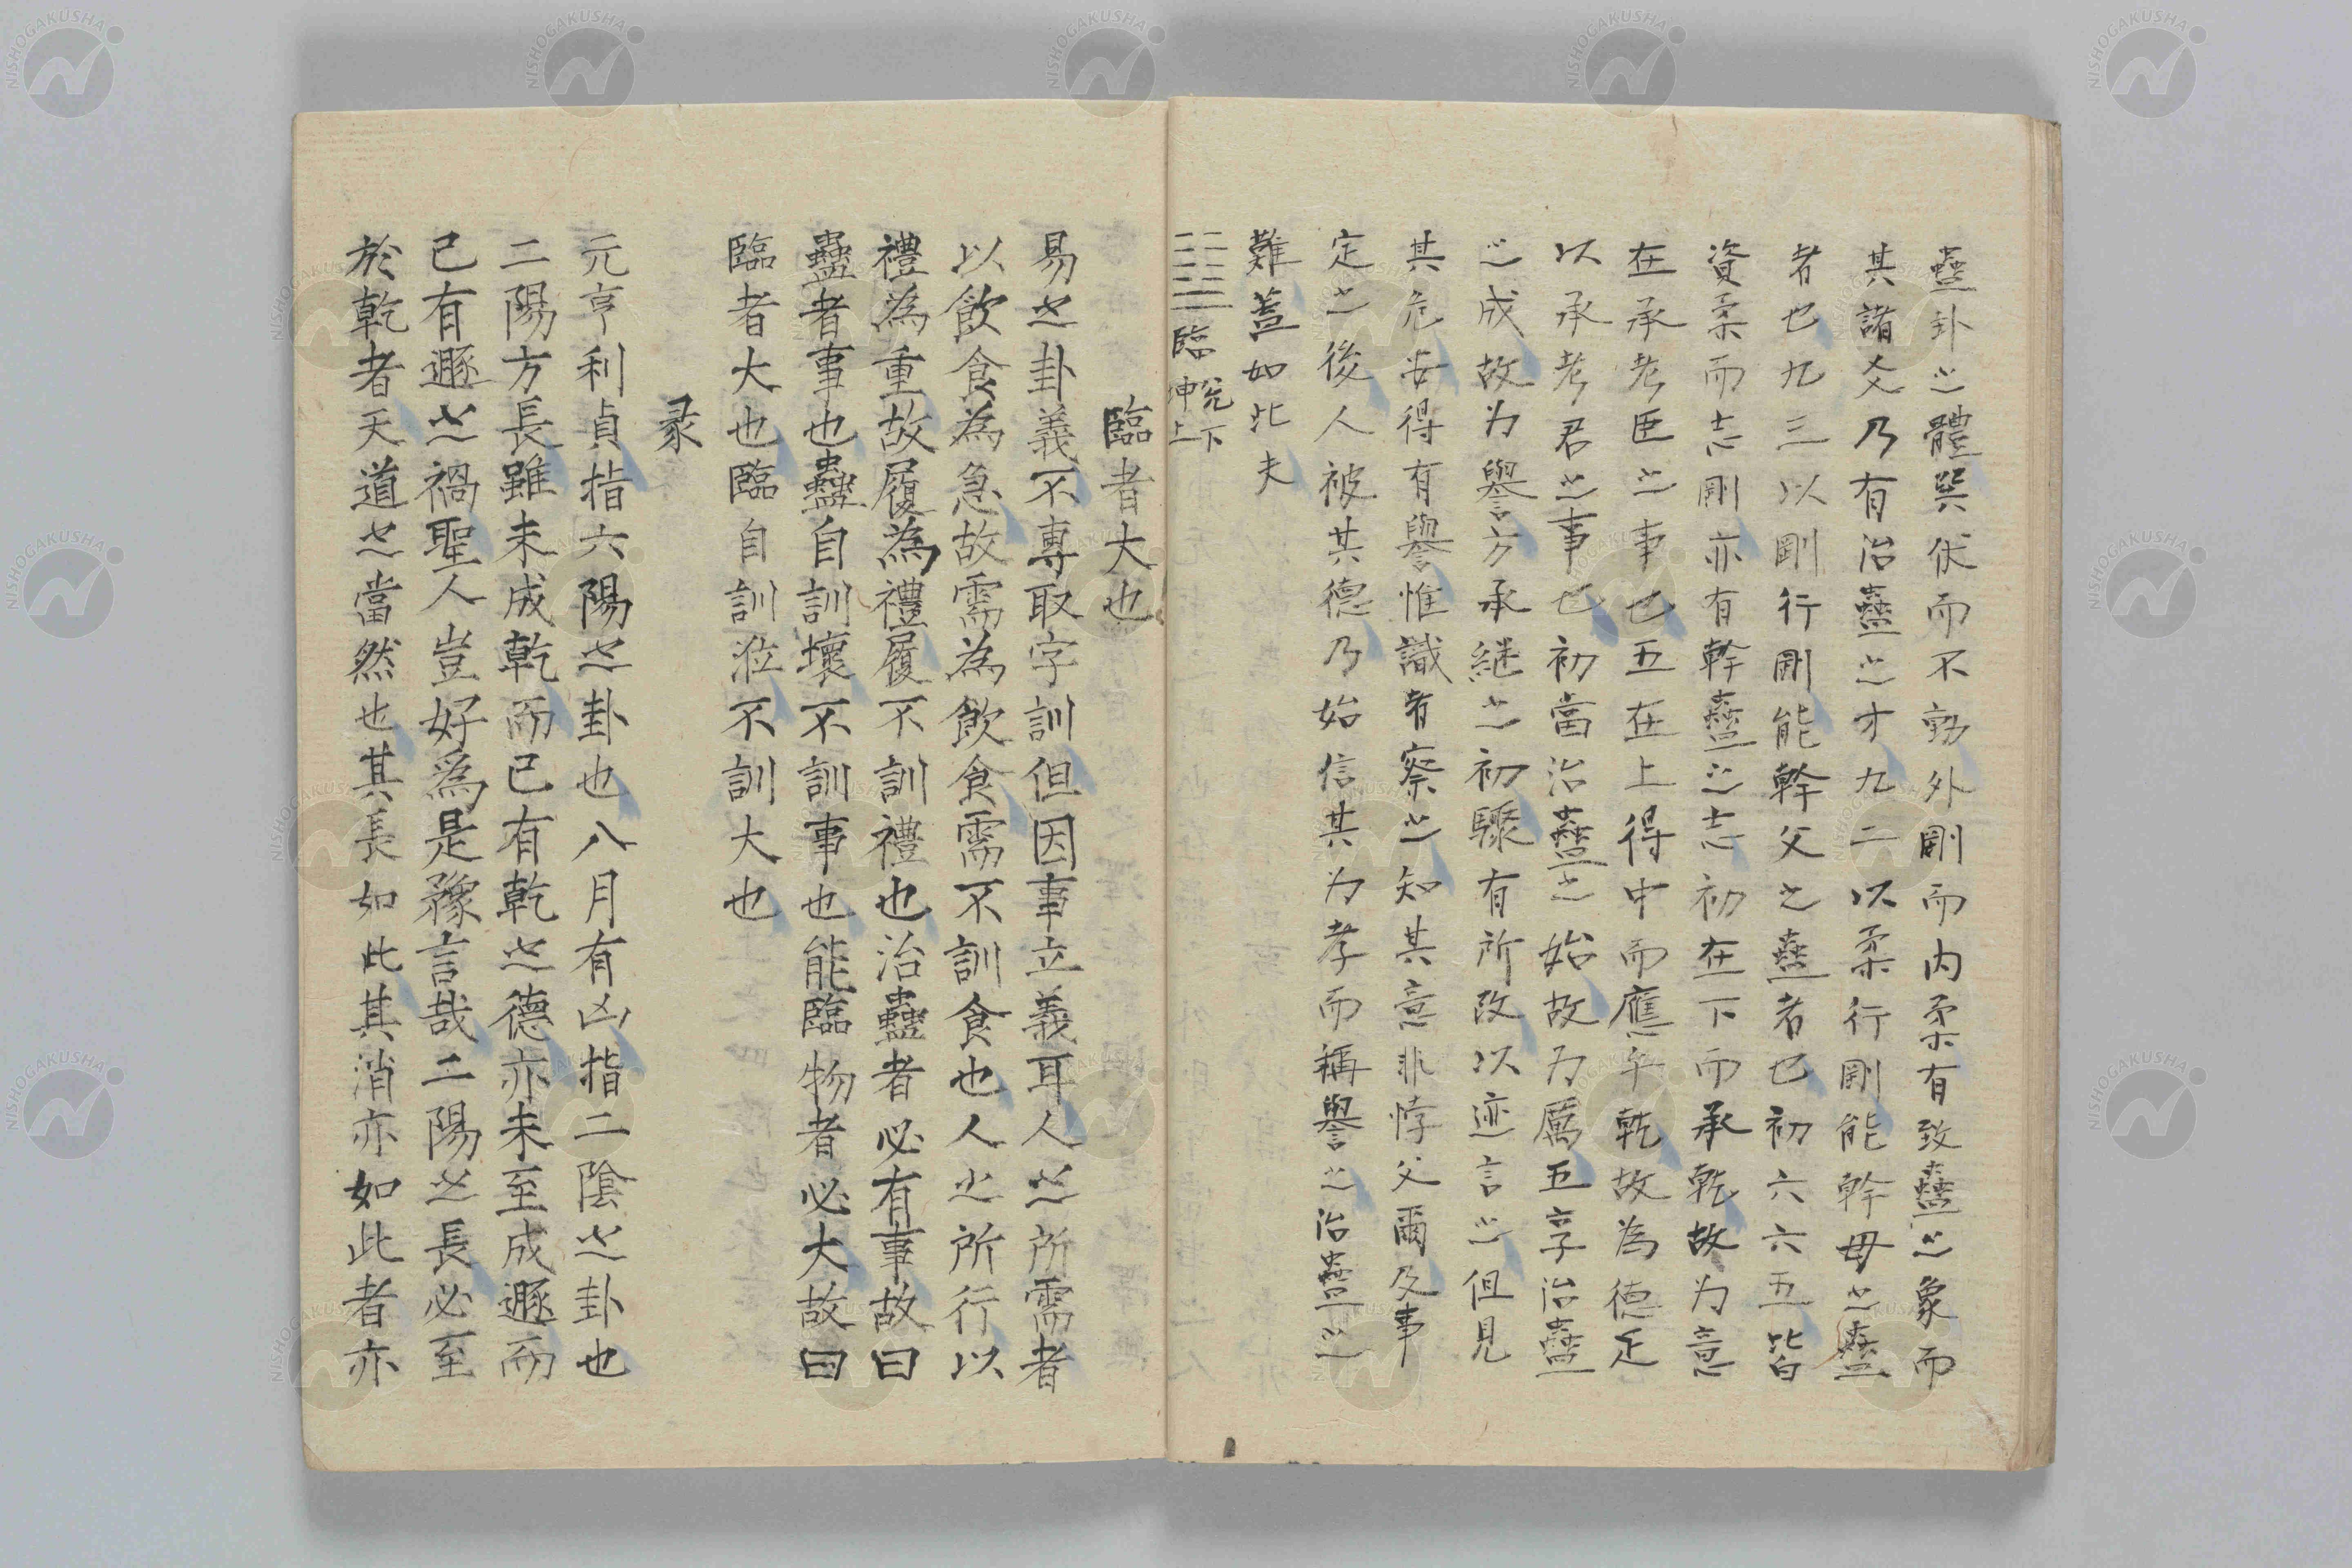 蠱卦之體巽伏而不勍外剛而内柔有致蠱之象而
其諸爻乃有治蠱之才九二以柔行剛能幹母之蠱
者也九三以剛行剛能幹父之蠱者也初六六五皆
資柔而志剛亦有幹蠱之志初在下而承乾故为意
在承考臣之事也五在上得中而應乎乾故為德足
以承考君之事也初當治蠱之始故为厲五享治蠱
之成故为譽方承継之初驟有所改以迹言之但見
其危安得有譽惟識者察之知其意非悖父爾及事
定之後人被其德乃始信其为孝而稱譽之治蠱之
難蓋如此夫
臨 兌下坤上
臨者大也
易之卦義不專取字訓但因事立義耳人之所需者
以飲食為急故需為飲食需不訓食也人之所行以
禮為重故履為禮履不訓禮也治蠱者必有事故曰
蠱者事也蠱自訓壞不訓事也能臨物者必大故曰
臨者大也臨自訓涖不訓大也
彖
元亨利貞指六陽之卦也八月有凶指二陰之卦也
二陽方長雖未成乾而已有乾之德亦未至成遯而
已有遯之禍聖人豈好為是豫言哉二陽之長必至
於乾者天道之當然也其長如此其消亦如此者亦
NISHOGAKUSHA